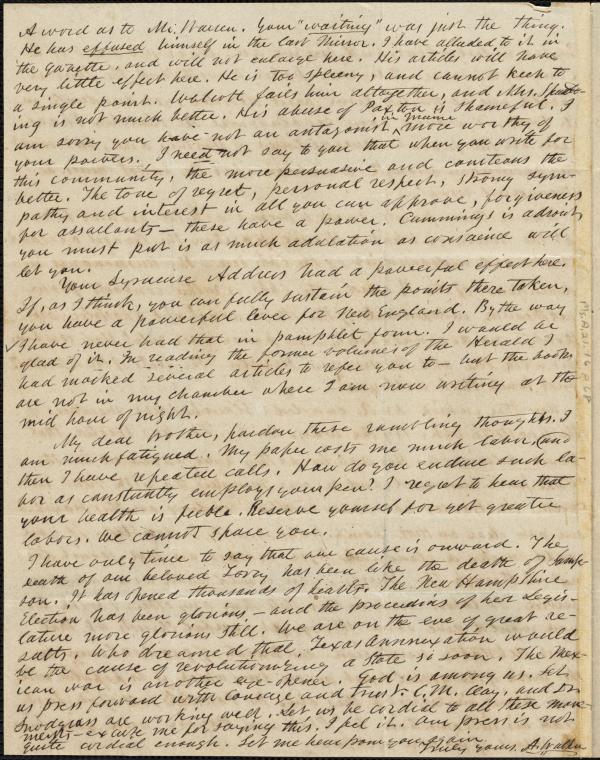 A word as to Mr. Warren. Your "waiting" was just the thing.
He has effused himself in the last Mirror. I have alluded to it in
the gazette, and will not enlarge here. His articles will have
very little effect here. He is too spleeny, and cannot keep to
a single point. Walcott fails him altogether, and Mrs.
ing is not much better. His abuse of Paxton is shameful. I
am sorry you have not an antagonist, in Maine more worthy of
your powers. I need not say to you that when you write for
this community, the more persuasive and courteous the
better. The tone of regret, personal respect, strong sym-
pathy and interest in all you can approve, forgiveness
for assailants – these have a power. Cummings is adroit,
you must put is as much adulation as consience will
let you.
Your Syracuse Address had a powerful effect here.
If, as I think, you can fully sustain the points there taken,
you have a powerful lever for New England. By the way
I have never had that in pamphlet form. I would be
glad of it. In reading the former volumes of the Herald I
had marked several articles to refer you to – but the books
are not in my chamber where I am now writing at the
mid hour of night.
My dear brother, pardon these rambling thoughts. I
am much fatigued. My paper costs me much labor, (and
then I have repeated calls. How do you endure such la-
bor as constantly employs your pen? I regret to hear that
your health is feeble. Reserve yourself for yet greater
labors. We cannot spare you.
I have only time to say that our cause is onward. The
death of our beloved Torry has been like the death of Samp-
son. It has opened thousands of hearts. The New Hampshire
Election has been glorious, – and the proceedings of her Legis-
lature more glorious still. We are on the eve of great re-
sults. Who dreamed that Texas Annexation would
be the cause of revolutionizing a State so soon. The Mex-
ican war is another eye-opener. God is among us. Let
us press forward with courage and trust. C. M. Clay, and Dr
Snodgrass are working well. Let us be cordial to all these move-
ments – excuse me for saying this. I feel it. Our press is not
quite cordial enough. Let me hear from you again.
Truly yours, A. Walker
Ms. A. 21. 16 p. 68